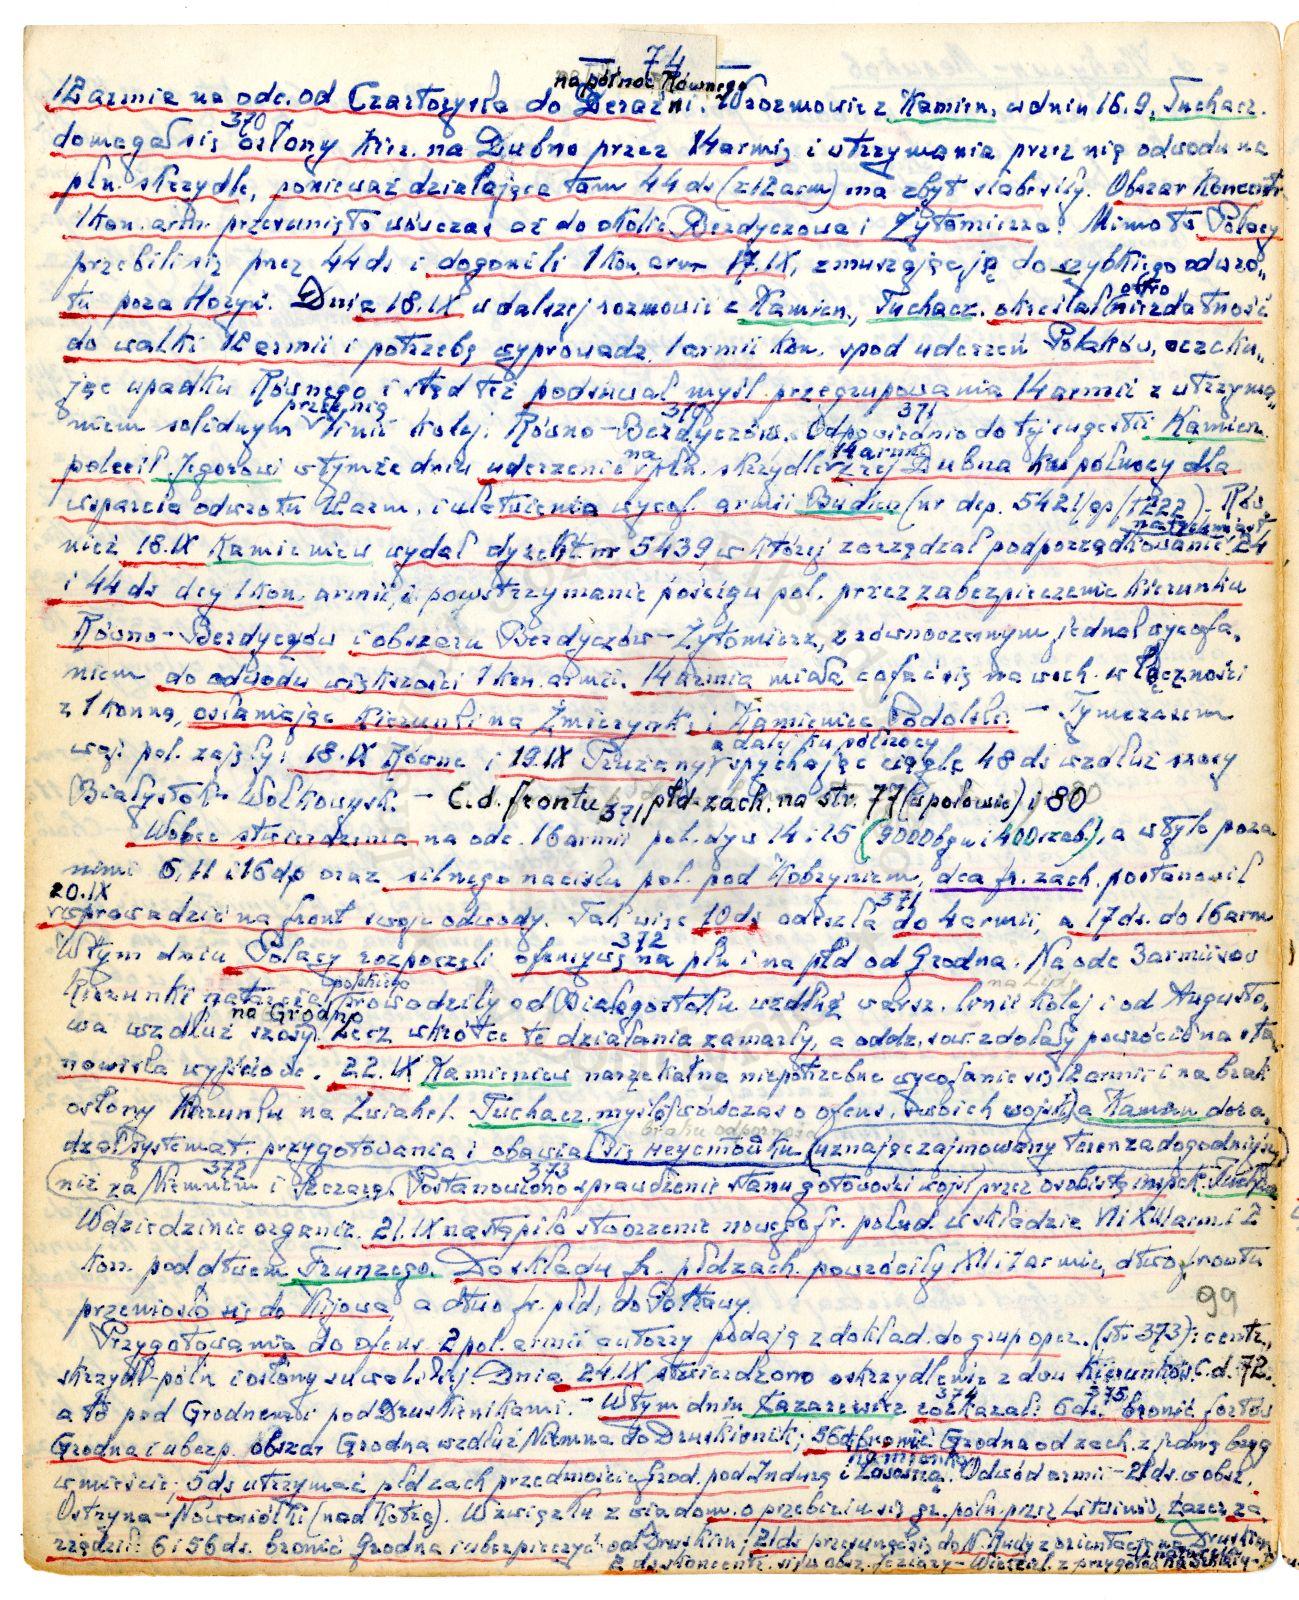 74
na północ Równego
12 armia na odc. od Czartoryska do Deraźni. W rozmowie z Kamien. w dniu 16.9. Tuchacz.
370
domagał się osłony kier. na Dubno przez 14 armię i utrzymania przez nią odwodu na
płn. skrzydle, ponieważ działająca tam 44 ds (z 12 arm) ma zbyt słabe siły. Obszar koncentr.
1 kon. armi przesunięto wówczas aż do okolic Berdyczowa i Żytomierza. Mimo to Polacy
przebili się przez 44 ds i dogonili 1 kon. arm 17.IX, zmuszając ją do szybkiego odwro„
ostro
tu poza Horyń. Dnia 18.IX w dalszej rozmowie z Kamien., Tuchacz. określał niezdatność
do walki 12 armii i potrzebę wyprowadz. 1 armii kon. spod uderzeń Polaków, oczeku„
jąc upadku Równego i stąd też podsuwał myśl przegrupowania 14 armii z utrzyma„
przez nią 370 371
niem solidnym linii kolej. Równo-Berdyczów. Odpowiednio do tej sugestii Kamien.
na 14 armii
polecił Jegorowi w tymże dniu uderzenie płn. skrzydłem z rej. Dubna ku północy dla
wsparcia odwrotu 12 arm. i ułatwienia wycof. armii Budien (nr dep. 5421/op/1222). Rów„
natychmiast
nież 18.IX Kamieniew wydał dyrekt. nr 5439, w której zarządzał podporządkowanie 24
i 44 ds dcy 1 kon. armii, i powstrzymanie pościgu pol. przez zabezpieczenie kierunku
Równo-Berdyczów i obszaru Berdyczów-Żytomierz, z równoczesnym jednak wycofa„
niem do odwodu większości 1 kon. armii. 14 armia miała cofać się na wsch. w łączności
z 1 konną, osłaniając kierunki na Żmierzynkę i Kamieniec Podolski - Tymczasem
a dalej ku północy
wojs. pol. zajęły: 18.IX Równe i 19.IX Prużany spychając ciągle 48 ds wzdłuż szosy
Białystok-Wołkowysk. - C.d. frontu płd-zach. na str. 77 (w połowie) i 80
371
Wobec stwierdzenia na odc. 16 armii pol. dyw 14 i 15 (9000 bgn i 400 szab), a w tyle poza
nimi 6, 11 i 16 dp oraz silnego nacisku pol. pod Kobryniem, dca fr. zach. postanowił
20.IX 371
wprowadzić na front swoje odwody. Tak więc 10 ds odeszła do 4 armii, a 17 ds. do 16 arm
372
W tym dniu Polacy rozpoczęli ofensywę na płn i na płd od Grodna. Na odc 3 armii sow
polskiego na Lidę
kierunki natarcia prowadziły od Białegostoku wzdłuż warsz. linii kolej i od Augusto„
na Grodno
wa wzdłuż szosy. Lecz wkrótce te działania zamarły, a oddz. sow. zdołały powrócić na sta„
nowiska wyjściowe. 22.IX Kamieniew narzekał na niepotrzebne wycofanie się 12 armii i na brak
osłony kierunku na Zwiahel. Tuchacz. myślał wówczas o ofens. swoich wojsk, a Kamien. dora„
braku odporności
dzał systemat. przygotowania i obawiał się, uznając zajmowany teren za dogodniejszy
372 373
niż za Niemnem i Szczarą. Postanowiono sprawdzenie stanu gotowości wojs. przez osobistą inspek. Tuchacz.
W dziedzinie organiz. 21.IX nastąpiło stworzenie nowego fr. połud. w składzie VI i XIII armii i 2
kon. pod dtwem Frunzego. Do składu fr. płdzach. powróciły XII i 14 armie, dtwo frontu
przeniosło się do Kijowa, a dtwo fr. płd. do Połtawy.
99
Przygotowania do ofens. 2 pol. armii autorzy podają z dokład. do grup oper. (str 373): centr.,
skrzydł. półn. i osłony suwalskiej. Dnia 24.IX stwierdzono oskrzydlenie z dwu kierunków. C.d. 72.
374 375
a to pod Grodnem i pod Druskienikami. - W tym dniu Łazarewicz rozkazał: 6 ds. bronić fortów
Grodna i ubezp. obszar Grodna wzdłuż Niemna do Druskienik; 56 d bronić Grodna od zach. z jedną bryg
w mieście; 5 ds utrzymać płdzach przedmoście Grod. pod Indurą i Łosośną. Odwód armii - 21 ds. w obsz.
Ostryna-Nowosiółki (nad Kotrą). W związku z wiadom. o przebiciu się gr. półn. przez Litwinów, Łazar. za
rządził: 6 i 56 ds. bronić Grodna i ubezpieczyć od Druskien.; 21 ds przesunąć się do N. Rudy z orientacją na Druskien.
2 ds skoncentr. się w obsz. Jeziory-